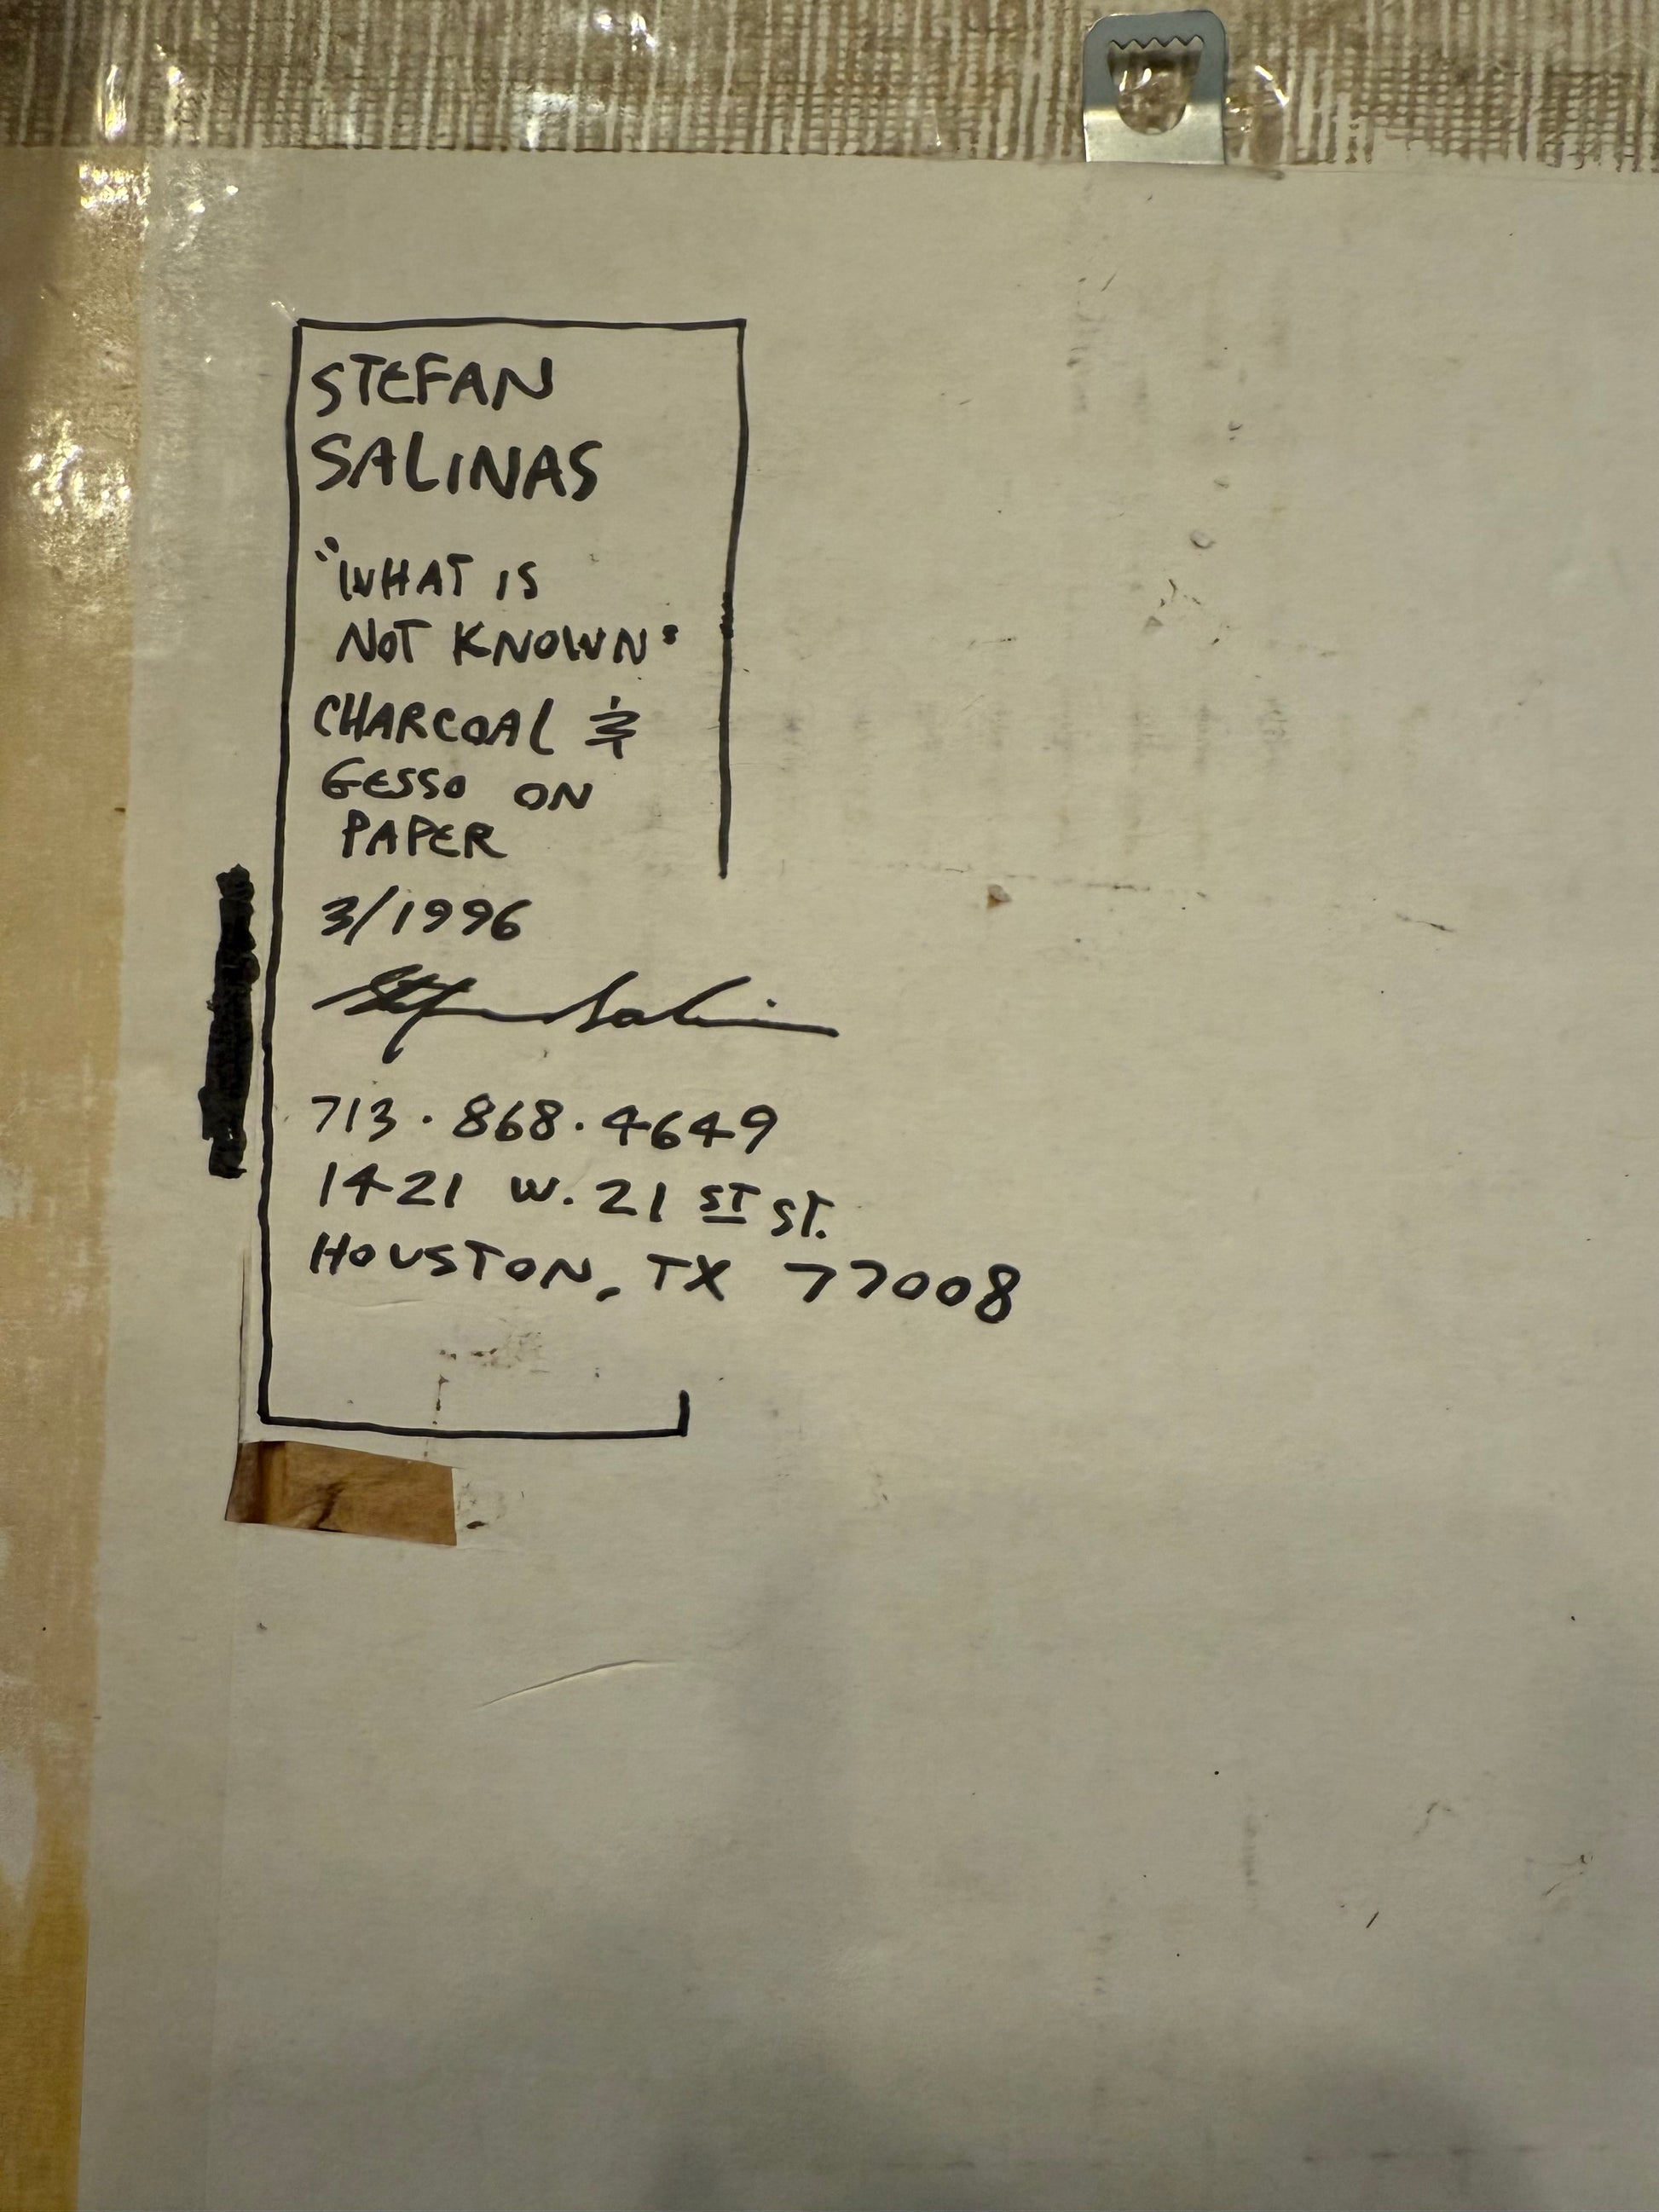 STEFAN
SALINAS
"WHAT IS
NOT KNOWN"
CHARCOAL &
GESSO ON
PAPER
3/1996
Stefan Salinas
713.868.4649
1421 W. 21 ST ST.
HOUSTON, TX 77008